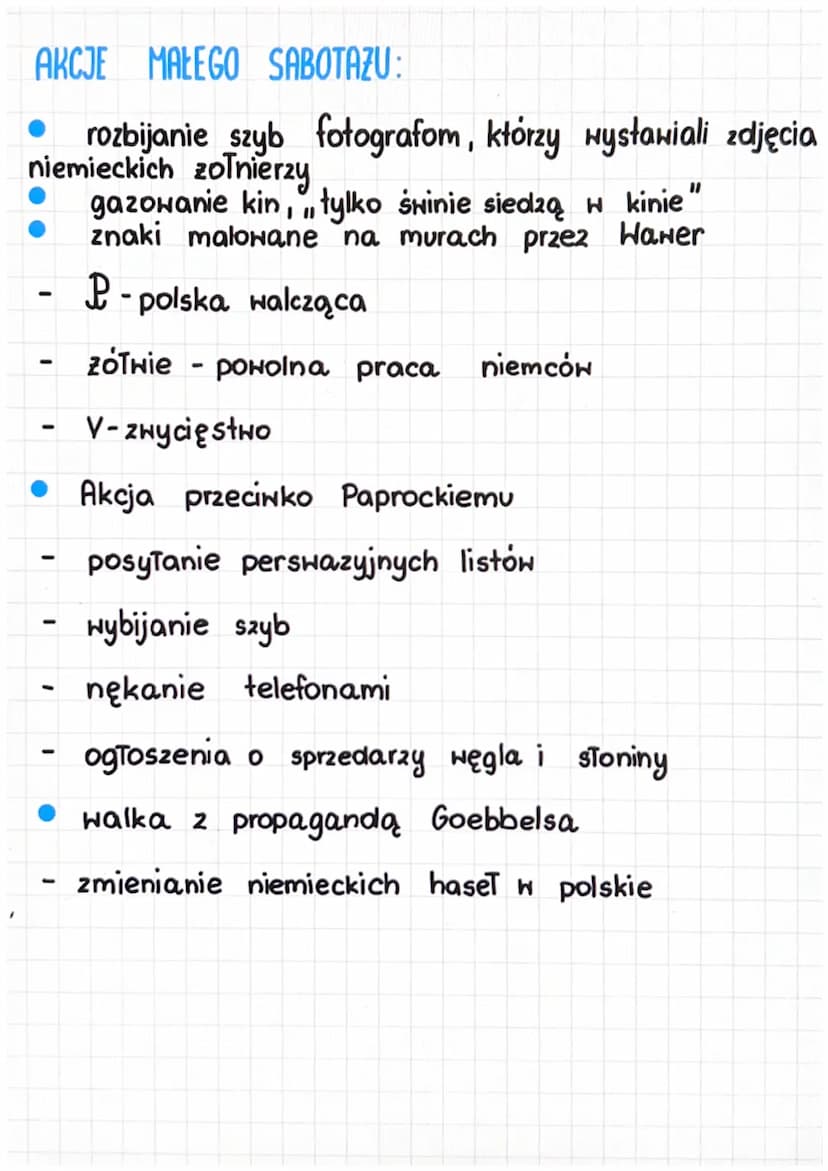 AKCJE MAŁEGO SABOTAŻU:
• rozbijanie szyb fotografom, którzy wystawiali zdjęcia
niemieckich żołnierzy
• gazowanie kin, „tylko świnie siedzą w kinie"
• znaki malowane na murach przez Wawer
- - polska walcząca
- żółwie - powolna praca niemców
- V - zwycięstwo
• Akcja przeciwko Paprockiemu
- posyłanie perswazyjnych listów
- wybijanie szyb
- nękanie telefonami
- ogłoszenia o sprzedarzy węgla i słoniny
• walka z propagandą Goebbelsa
- zmienianie niemieckich haseł w polskie